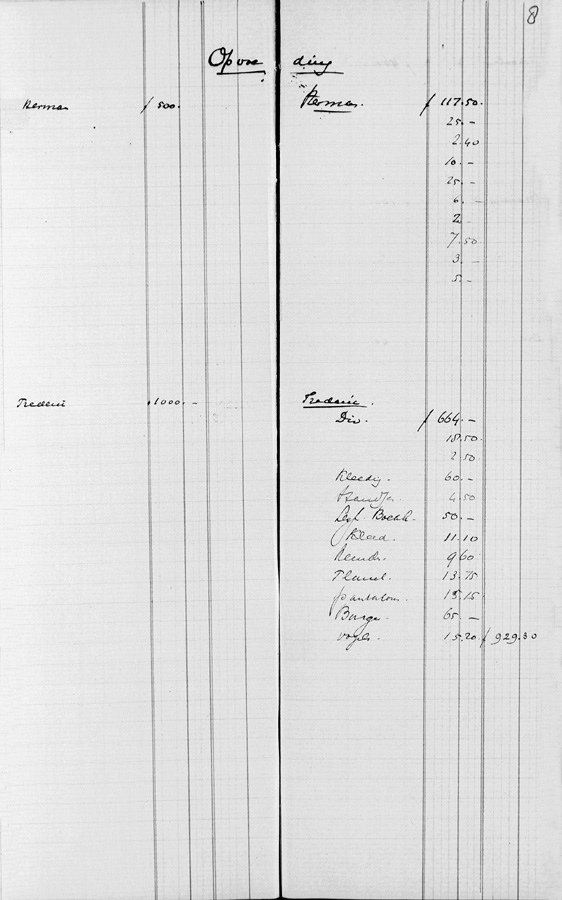 8
Opvoeding
Herman ƒ 500.-
Herman. ƒ 117.50.
25.-
2.40
10.-
25.-
6.-
2.
7.50
3.-
5.-
Frederic 1000.-
Frederic.
Div. ƒ 664.-
18.50.
2.50
Kleedg. 60.-
4.50
Boekh. 50.-
Kleed. 11.10
9.60
Flanel. 13.75
pantalon. 15.15
Burger. 65.-
15.20 ƒ 929.30